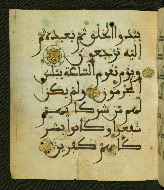 يبدؤا الخلق ثم يعيده ثم
اليه ترجعون
ويوم تقوم الساعة يبلس
المجرمون ولم يكن
لهم من شركائهم
شفعؤا وكانوا بشر
كائهم كفرين